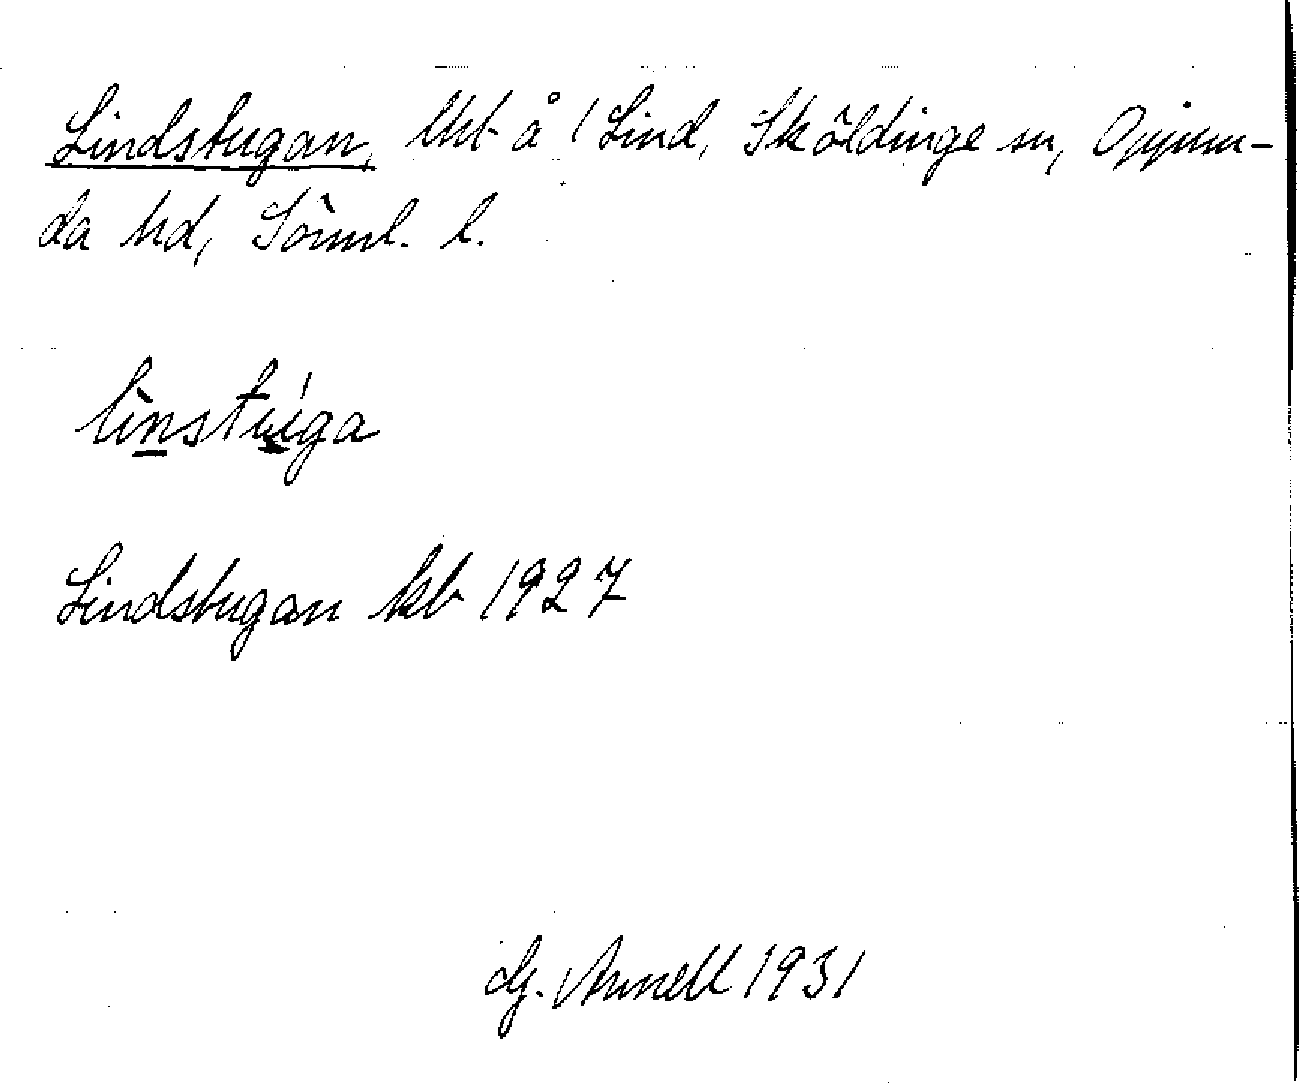 Lindstugan, lht å / Lind, Sköldinge sn, Oppun-
da hd, Sörml. l.
lìnstúga
Lindstugan kb 1927
G. Annell 1931